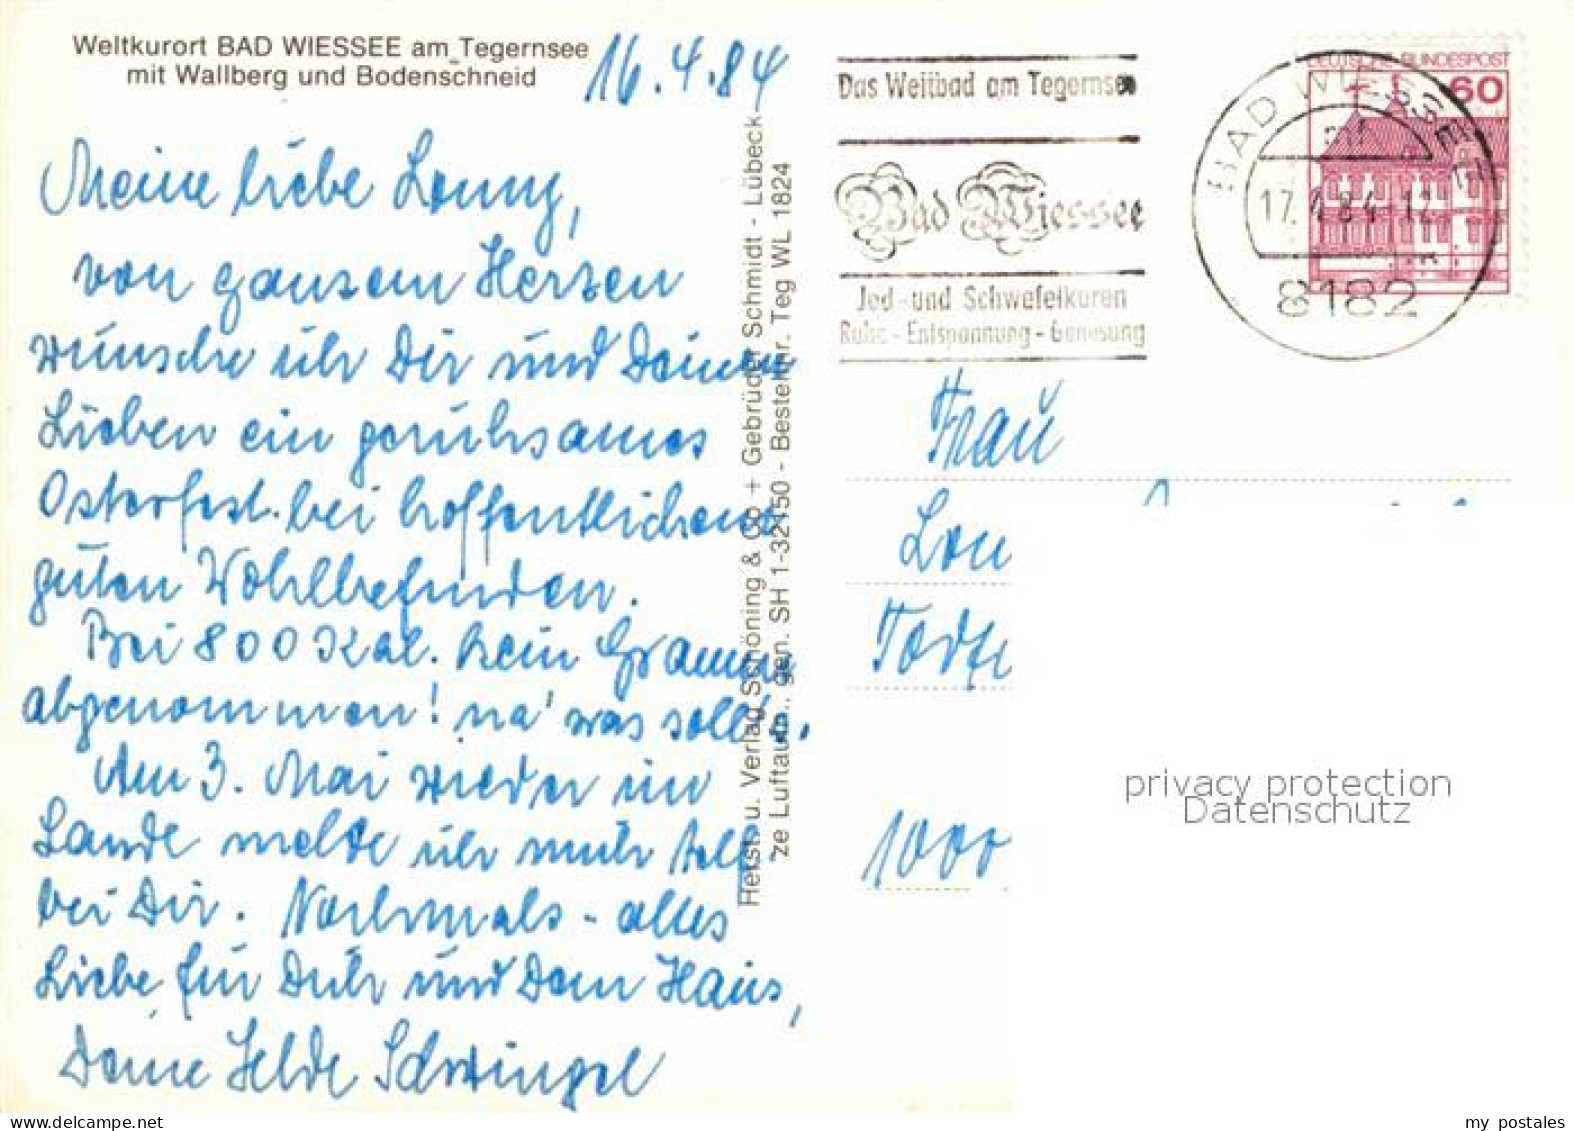 Weltkurort BAD WIESSEE am Tegernsee
mit Wallberg und Bodenschneid
16.4.84
Meine liebe Lonny,
von ganzem Herzen
wünsche ich Dir und Deinen
Lieben ein geruhsames
Osterfest bei hoffentlichem
guten Wohlbefinden.
Bei 800 Kal. kein Gramm
abgenommen! na' was soll's.
Am 3. Mai wieder im
Lande melde ich mich
bei Dir. Nochmals - alles
Liebe für Dich und Dein Haus,
Deine Hilde Schwingel
Herst. u. Verlag Schöning & Co + Gebrüder Schmidt - Lübeck
ze Luftaufn., gen. SH 1-32150 - Bestellnr. Teg WL 1824
Das Weltbad am Tegernsee
Bad Wiessee
Jod- und Schwefelkuren
Ruhe - Entspannung - Genesung
DEUTSCHE BUNDESPOST
60
BAD WIESSEE
17.4.84-12
8182
Frau
Lon
1000
privacy protection
Datenschutz
my postales